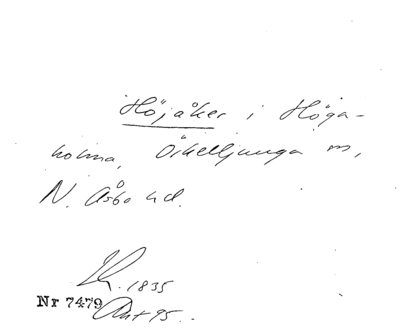 Höjåker i Höga-
holma, Örkelljunga sn,
N. Åsbo hd.
1835
Nr 7479
Akt 95.